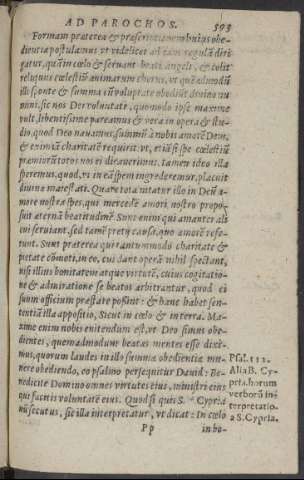 AD PAROCHOS. 593
Formam præterea & præscriptionem huius obe-
dientiæ postulamus, vt videlicet ad eam regulā diri-
gatur, quā in cœlo & seruant beati angeli, & colit
reliquus cœlestiū animarum chorus, vt quēadmodū
illi sponte & summa cū voluptate obediūt diuino nu
mini, sic nos Dei voluntati, quomodo ipse maxime
vult, libentissime pareamus & vero in opera & stu-
dio, quod Deo nauamus, summū à nobis amorē Deus,
& eximiā charitatē requirit, vt, etiā si spe cœlestiū
præmiorū totos nos ei dicauerimus, tamen ideo illa
speremus, quod, vt in eā spem ingrederemur, placuit
diuinæ maiestati. Quare tota nitatur illo in Deū a-
more nostra spes, qui mercedē amori nostro propo-
suit æternā beatitudinē Sunt enim qui amanter ali
cui seruiant, sed tamē pretij causa, quo amorē refe-
runt. Sunt præterea qui tantummodo charitate &
pietate cōmoti, in eo, cui dant operā nihil spectant,
nisi illius bonitatem atque virtutē, cuius cogitatio-
ne & admiratione se beatos arbitrantur, quod ei
suum officium præstare possint: & hanc habet sen-
tentiā illa appositio, Sicut in cœlo & in terra. Ma-
xime enim nobis enitendum est, vt Deo simus obe-
dientes, quemadmodum beatas mentes esse dixi-
mus, quorum laudes in illo summæ obedientiæ mu-
nere obeundo, eo psalmo persequitur Dauid: Be-
nedicite Domino omnes virtutes eius, ministri eius
qui facitis voluntatē eius. Quod si quis S. Cypria
nū secutus, sic illa interpretatur, vt dicat: In cœlo
Psal. 112.
Alia B. Cy-
pria. horum
verborū in-
terpretatio.
a S. Cypria.
Pp in bo-